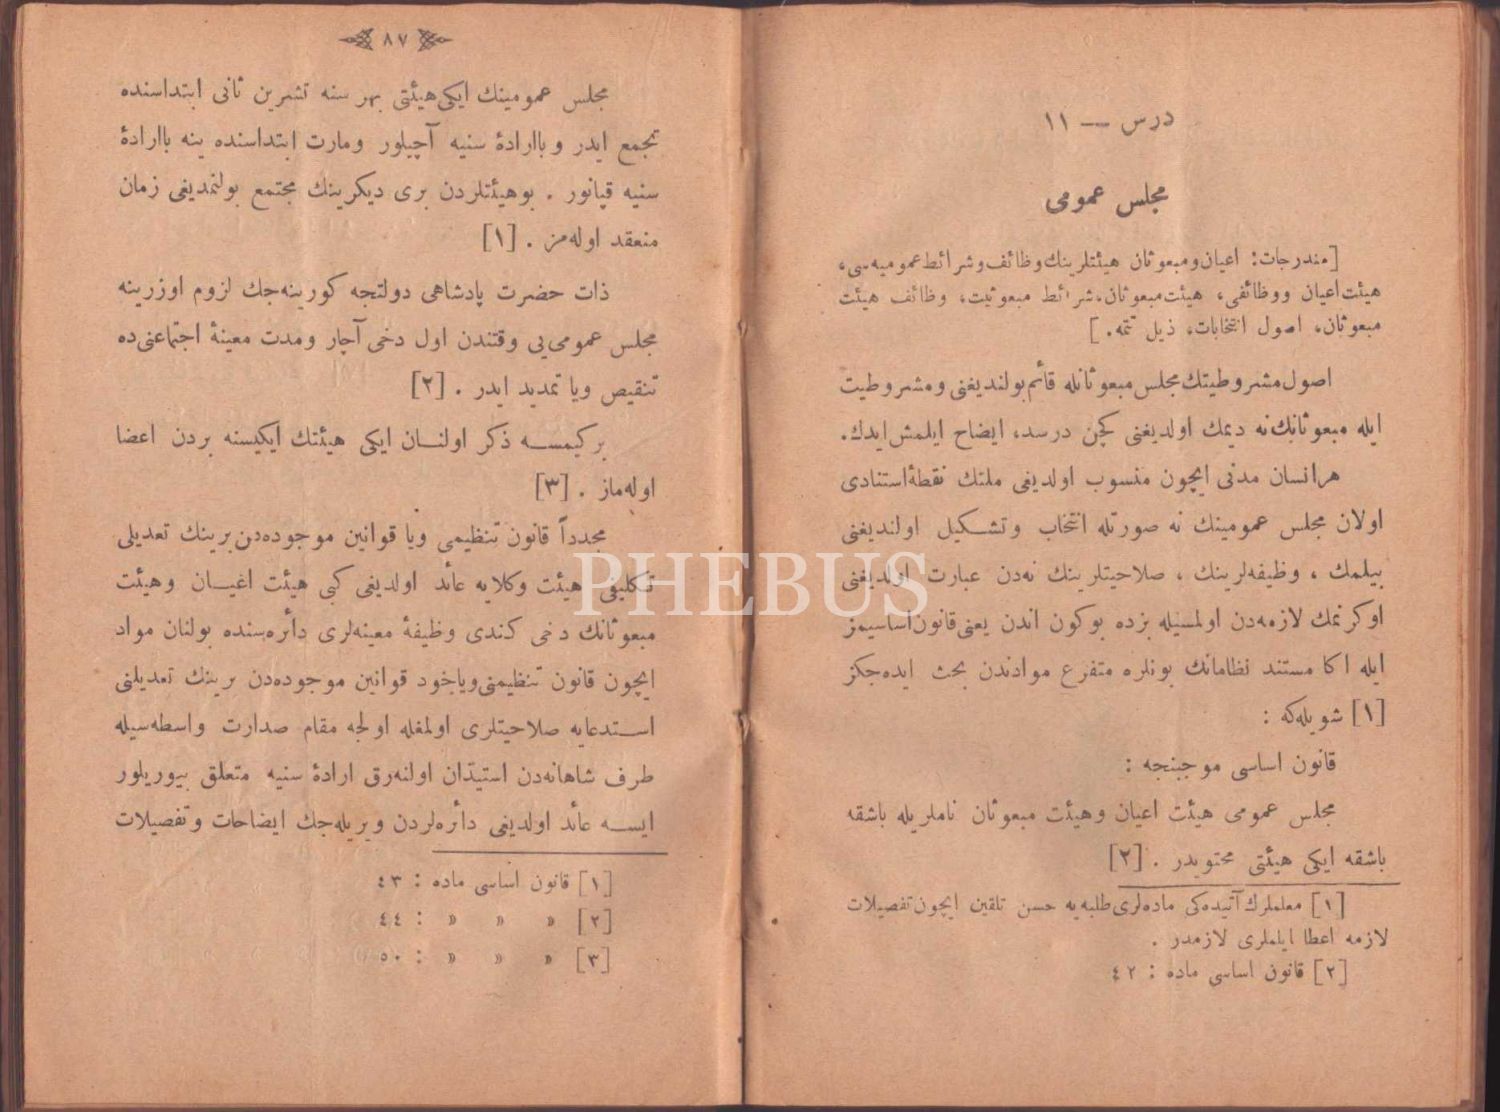 درس — ١١
مجلس عمومی
[مندرجات: اعیان ومبعوثان هیئتلرینك وظائف وشرائط عمومیه‌سی،
هیئت اعیان ووظائفی، هیئت مبعوثان، شرائط مبعوثیت، وظائف هیئت
مبعوثان، اصول انتخابات، ذیل تتمه. ]
اصول مشروطیتك مجلس مبعوثانله قائم بولندیغنی ومشروطیت
ایله مبعوثانك نه دیمك اولدیغنی كچن درسد، ایضاح ایلمش ایدك.
هر انسان مدنی ایچون منسوب اولدیغی ملتك نقطهٔ استنادی
اولان مجلس عمومینك نه صورتله انتخاب وتشكیل اولندیغنی
بیلمك ، وظیفه‌لرینك ، صلاحیتلرینك نه‌دن عبارت اولدیغنی
اوكرنمك لازمه‌دن اولمسیله بزده بوكون اندن یعنی قانون اساسیمز
ایله اكا مستند نظاماتك بونلره متفرع موادندن بحث ایده‌جكز
[١] شویله‌كه :
قانون اساسی موجبنجه :
مجلس عمومی هیئت اعیان وهیئت مبعوثان ناملریله باشقه
باشقه ایكی هیئتی محتویدر . [٢]
[١] معلملرك آتیده‌كی ماده‌لری طلبه‌یه حسن تلقین ایچون تفصیلات
لازمه اعطا ایلملری لازمدر .
[٢] قانون اساسی ماده : ٤٢
٨٧
مجلس عمومینك ایكی هیئتی بهر سنه تشرین ثانی ابتداسنده
تجمع ایدر و باارادهٔ سنیه آچیلور ومارت ابتداسنده ینه باارادهٔ
سنیه قپانور . بوهیئتلردن بری دیكرینك مجتمع بولنمدیغی زمان
منعقد اوله‌مز . [١]
ذات حضرت پادشاهی دولتجه كورینه‌جك لزوم اوزرینه
مجلس عمومی‌یی وقتندن اول دخی آچار ومدت معینهٔ اجتماعنی‌ده
تنقیص ویا تمدید ایدر . [٢]
بركیمسه ذكر اولنان ایكی هیئتك ایكیسنه بردن اعضا
اوله‌ماز . [٣]
مجدداً قانون تنظیمی ویا قوانین موجوده‌دن برینك تعدیلی
تكلیفی هیئت وكلایه عائد اولدیغی كبی هیئت اعیان وهیئت
مبعوثانك دخی كندی وظیفهٔ معینه‌لری دائره‌سنده بولنان مواد
ایچون قانون تنظیمنی ویاخود قوانین موجوده‌دن برینك تعدیلنی
استدعایه صلاحیتلری اولمغله اولجه مقام صدارت واسطه‌سیله
طرف شاهانه‌دن استیذان اولنه‌رق ارادهٔ سنیه متعلق بیوریلور
ایسه عائد اولدیغی دائره‌لردن ویریله‌جك ایضاحات وتفصیلات
[١] قانون اساسی ماده : ٤٣
[٢] » » » : ٤٤
[٣] » » » : ٥٠
PHEBUS